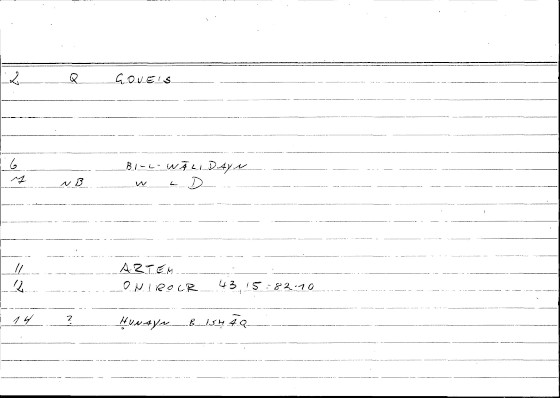 2 Q GOVEIS
6 BI-L-WĀLIDAYN
7 NB W L D
11 ARTEM
12 ONIROCR 43,15-82.10
14 ? ḤUNAYN B ISḤĀQ